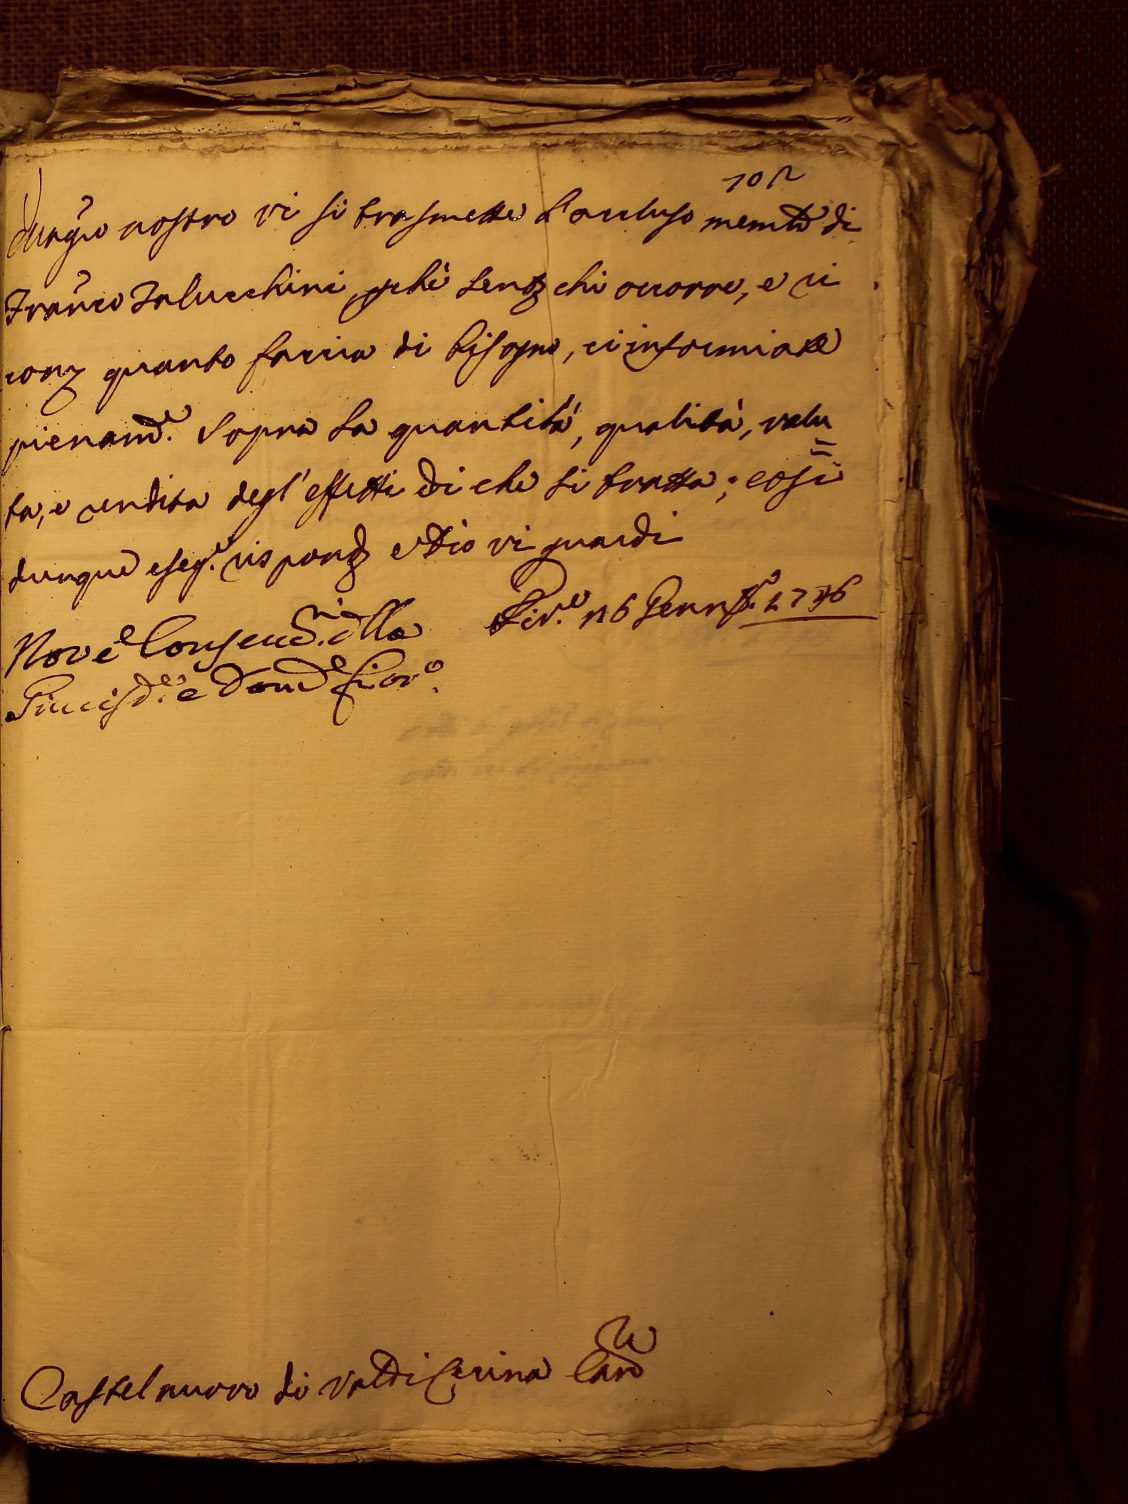 102
nostro vi si trasmette l'accluso memle di
Franco Talucchini perchè sentᵃ chi occorre, e vi
cong quanto faccia di bisogno, ci informiate
pienamᵉ. sopra la quantità, qualità, valu=
ta, e rendita degl'effetti di che si tratta; così
dunque eseg.ᵉ rispondᵃ e Dio vi guardi
Fir.ᵉ 16 Genn.ᵒ 1736
Nove Conserv.ʳⁱ della
Giurisd.ᵉ e Domᵉ Fior.ᵒ
Castelnuovo di Val di Cecina